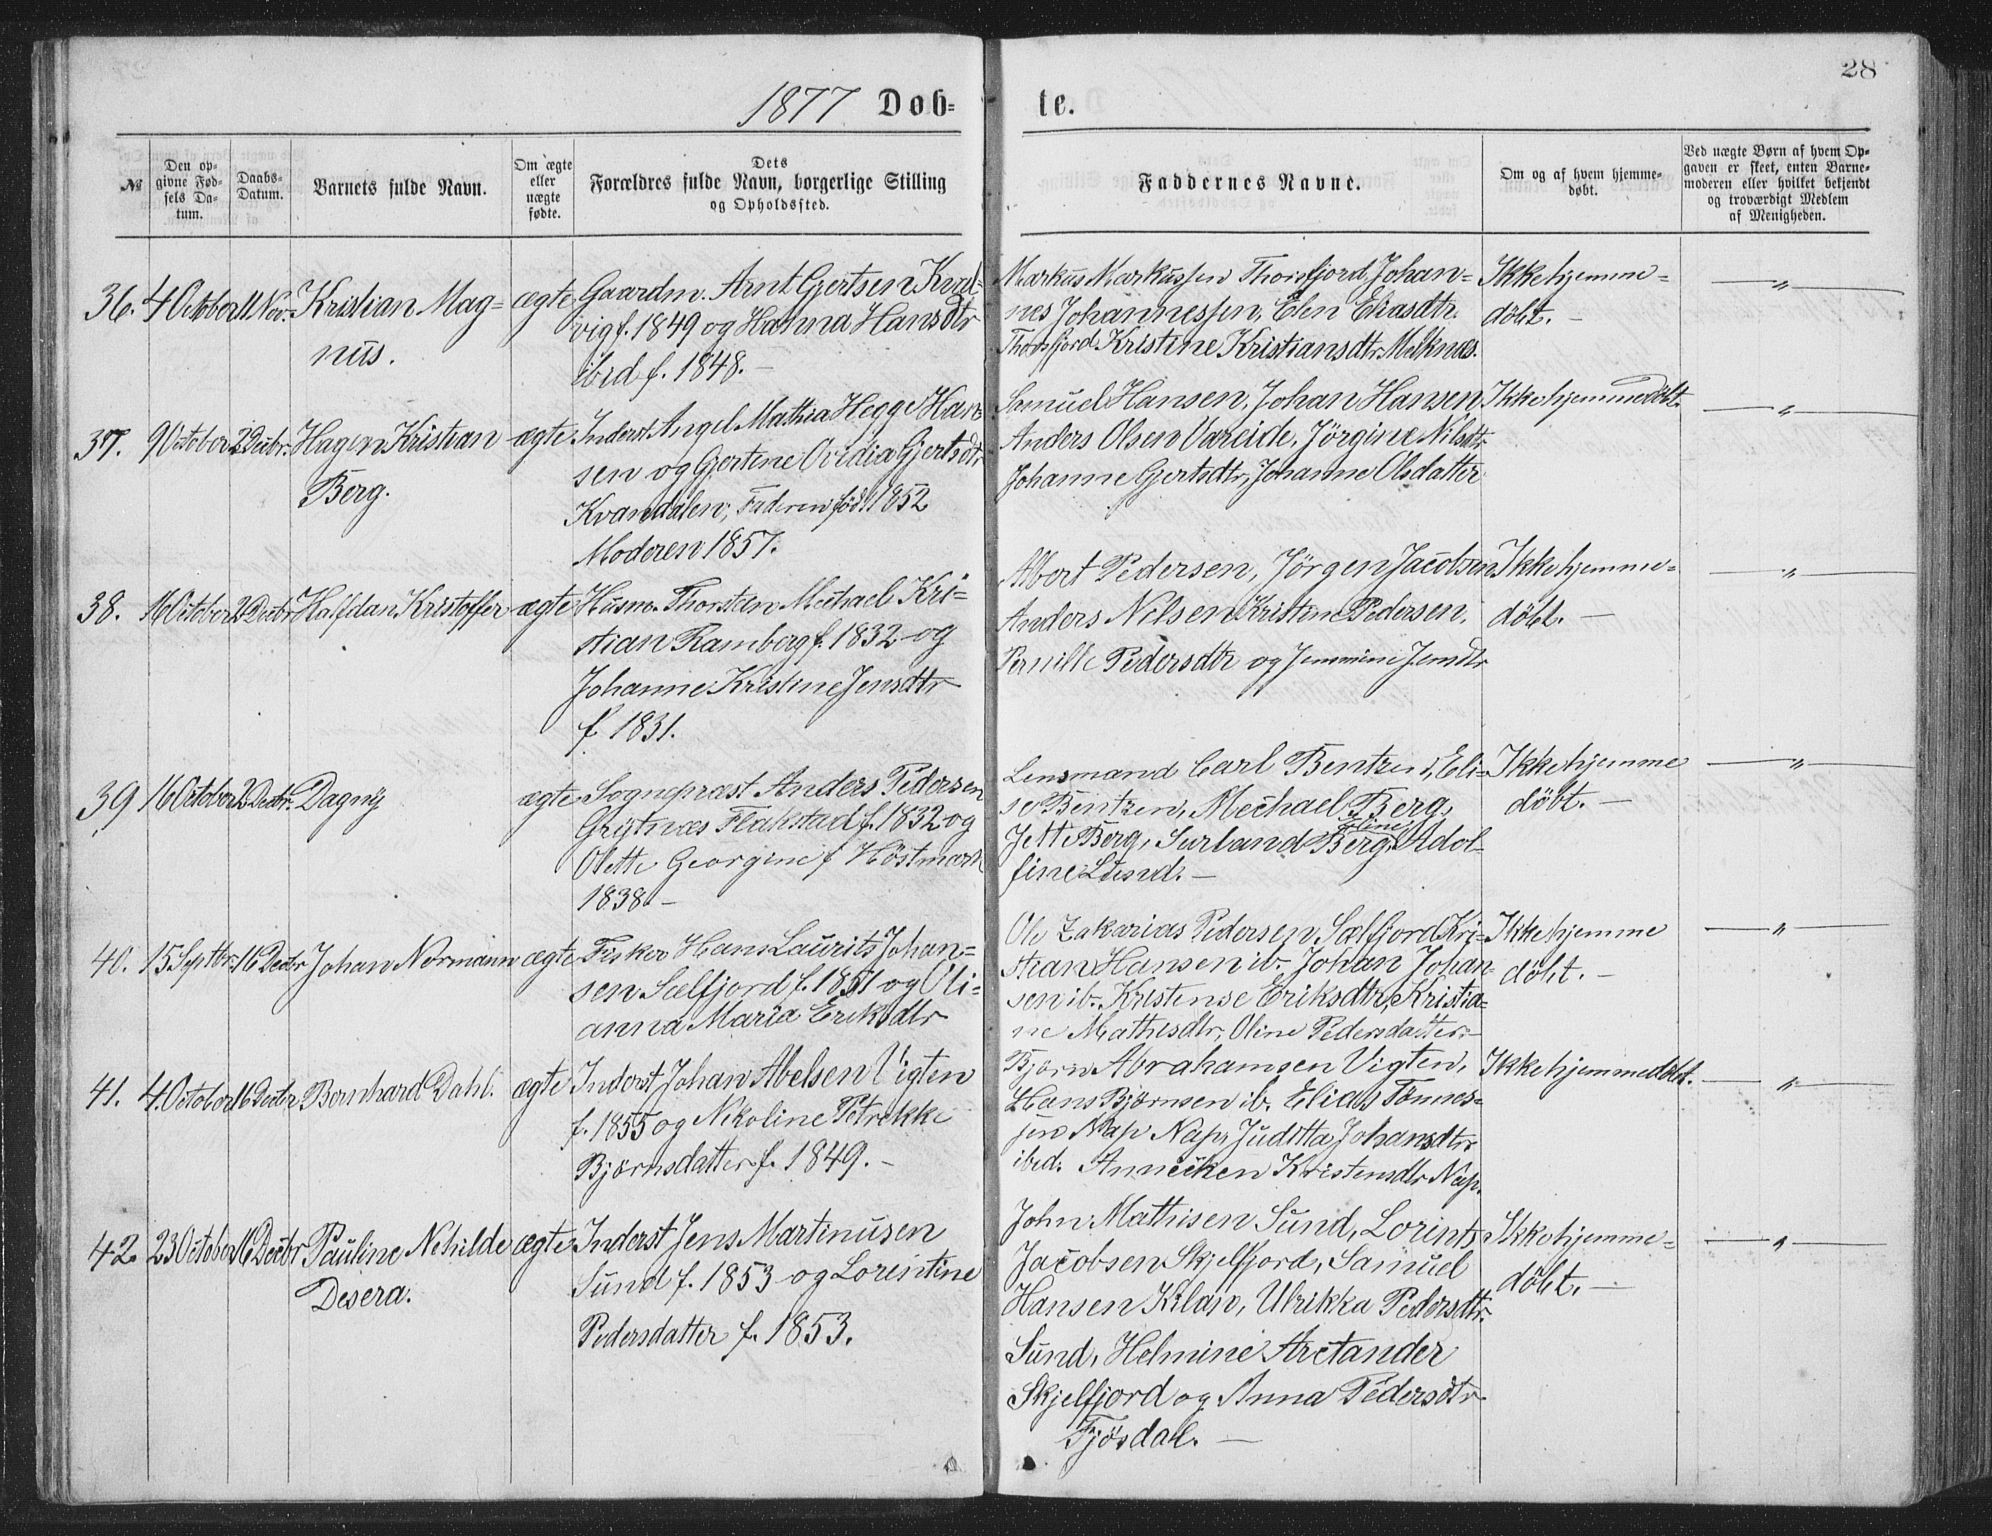 28
1877 Døb- te.
№
Den op-
givne Fød-
sels Da-
tum.
Daabs-
Datum.
Barnets fulde Navn.
Om ægte
eller
uægte
fødte.
Dets
Forældres fulde Navn, borgerlige Stilling
og Opholdssted.
Faddernes Navne.
Om og af hvem hjemme-
døbt.
Ved uægte Børn af hvem Op-
gaven er skeet, enten Barne-
moderen eller hvilket bekjendt
og troværdigt Medlem
af Menigheden.
36. 4 October 11 Nov. Kristian Mag-
nus.
ægte
Gaardm. Arnt Gjertsen Kval-
vig f. 1849 og Hanna Hansdtr
ibid f. 1848. –
Markus Markussen Thorsfjord, Johan-
nes Johannessen, Elen Eliasdtr.
Thorsfjord Kristine Kristiansdtr. Melknæs.
Ikke hjemme-
döbt. –
— „ —
37. 9 October 2 Decbr. Hagen Kristian
Berg.
ægte
Inderst Angel Mathia Hegge Han-
sen og Gjertine Ovidia Gjertsdtr
Kvandalen, Faderen föd 1852
Moderen 1857.
Samuel Hansen, Johan Hansen
Anders Olsen Vareide, Jörgine Nilsdtr
Johanne Gjertsdtr, Johanne Olsdatter
Ikke hjemmedöbt.
— „ —
38. 16 October 2 Decbr Halfdan Kristoffer
ægte
Husm. Thorsten Michael Kri-
stian Ramberg f. 1832 og
Johanne Kristine Jensdtr
f. 1831.
Albert Pedersen, Jörgen Jacobsen
Anders Nilsen Kristine Pedersen,
Pernille Pedersdtr og Jemmine Jensdtr
Ikke hjemme-
döbt. –
— „ —
39 16 October 2 Decbr. Dagny
ægte
Sognepræst Anders Pedersen
Gristnæs Flakstad f. 1832 og
Olette Georgine f Höstmark
1838 –
Lensmand Carl Bentzen, Eli-
se Bentzen, Michael Berg,
Jette Berg, Surland Berg, Adol-
Eline
fine Lund. –
Ikke hjemme
döbt. –
— „ —
40. 15 Septbr. 16 Decbr Johan Normann
ægte
Fisker Hans Laurits Johan-
sen Sælfjord f. 1851 og Oli-
anna Maria Eriksdtr
Ole Zakarias Pedersen, Sælfjord Kri-
stian Hansen ib. Johan Johan-
sen ib. Kristense Eriksdtr, Kristia-
ne Mathisdtr, Oline Pedersdatter
Ikke hjemme
döbt. –
— „ —
41. 4. October 16 Decbr Bernhard Dahl.
ægte
Inderst Johan Abelsen Vigten
f. 1855 og Nikoline Petrikke
Björnsdatter f. 1849. –
Björn Abrahamsen Vigten,
Hans Björnsen ib. Elias Tönnes-
sen Nap Nap, Juditta Johansdtr
ibid. Annecken Kristensdtr Nap.
Ikke hjemmedöbt.
— „ —
42. 23 October 16 Decbr Pauline Nehilde
Desera.
ægte
Inderst Jens Martinusen
Sund f. 1853 og Lorentine
Pedersdatter f. 1853.
John Mathisen Sund, Lorints
Jacobsen Skjelfjord, Samuel
Hansen Kilan, Ulrikka Pedersdtr.
Sund, Helmine Arctander
Skjelfjord og Anna Pedersdtr
Fjösdal. –
Ikke hjemme-
döbt. –
— „ —